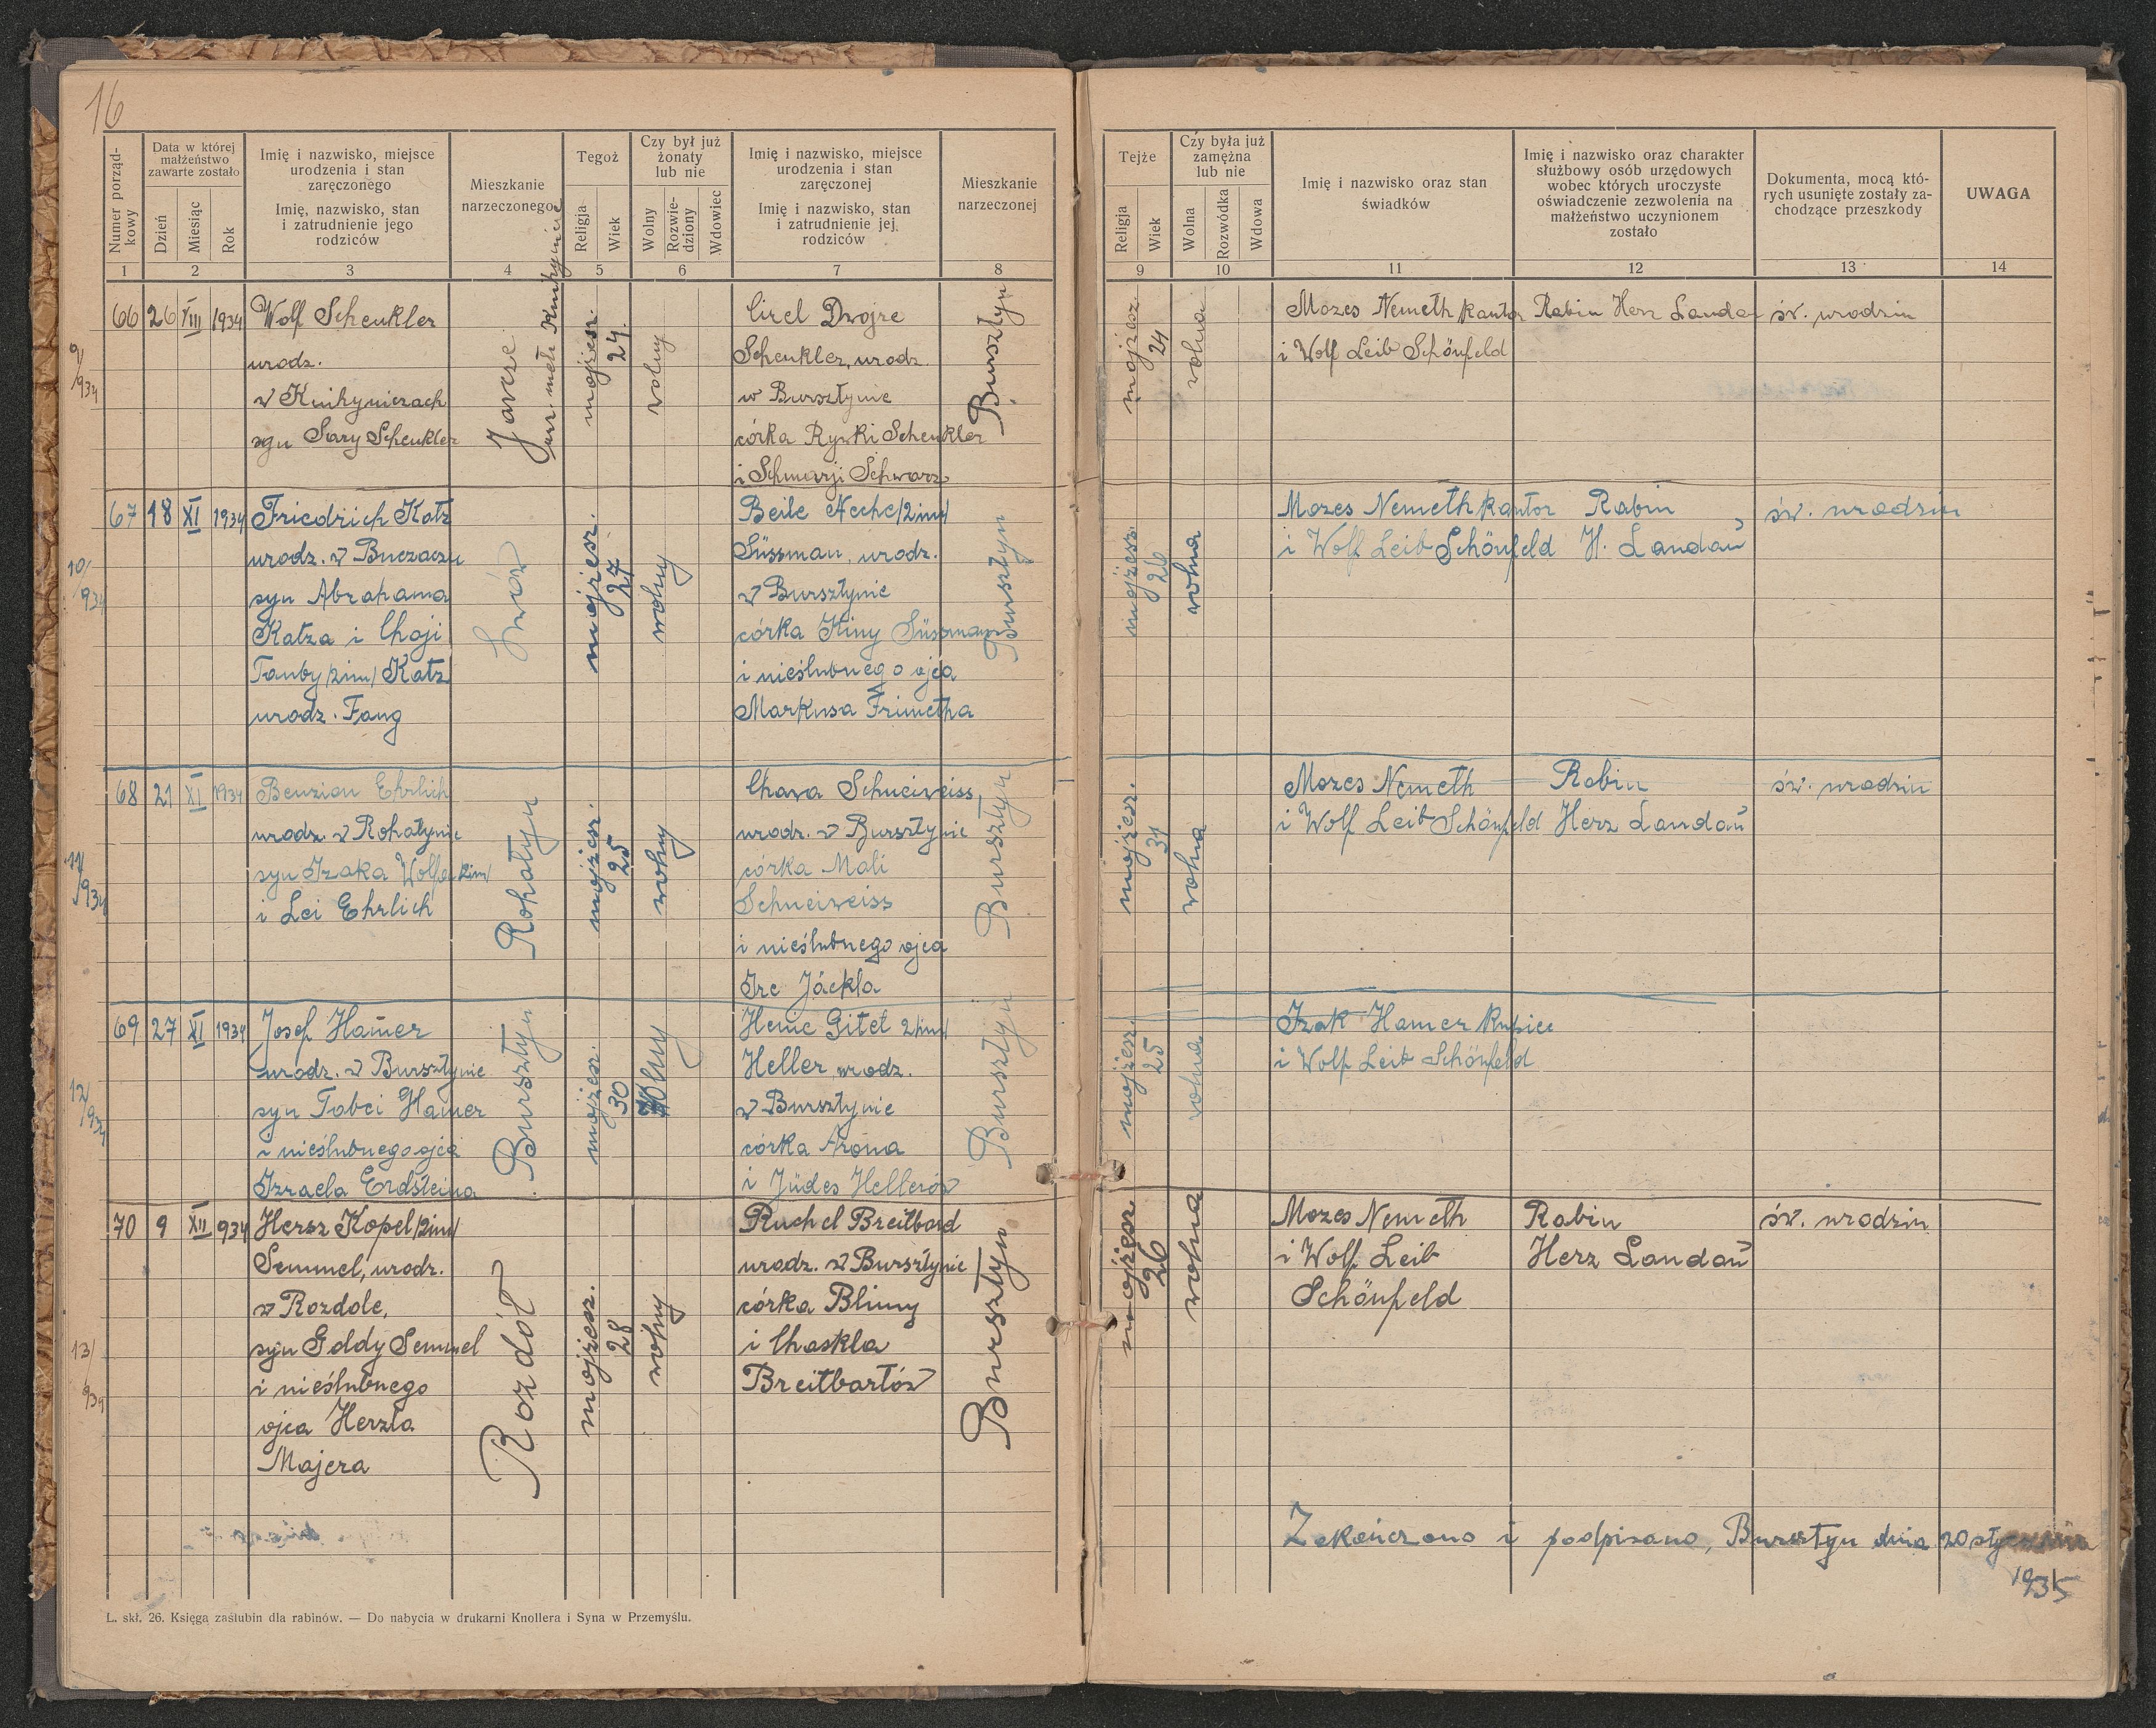 16
Numer porząd-
kowy
Data w której
małżeństwo
zawarte zostało
Dzień
Miesiąc
Rok
Imię i nazwisko, miejsce
urodzenia i stan
zaręczonego
Imię, nazwisko, stan
i zatrudnienie jego
rodziców
Mieszkanie
narzeczonego
Tegoż
Religja
Wiek
Czy był już
żonaty
lub nie
Wolny
Rozwie-
dziony
Wdowiec
Imię i nazwisko, miejsce
urodzenia i stan
zaręczonej
Imię i nazwisko, stan
i zatrudnienie jej
rodziców
Mieszkanie
narzeczonej
1 2 3 4 5 6 7 8
66 26 VIII 1934
9/934
Wolf Schenkler
urodz.
w Knihyniczach
syn Sary Schenkler
mojżesz.
24.
wolny
Cirel Dwojre
Schenkler, urodz.
w Bursztynie
córka Rywki Schenkler
i Schmarji Schwarz
Bursztyn
67 18 XI 1934
10/934
Friedrich Katz
urodz. w Buczaczu
syn Abrahama
Katza i Chaji
Tauby /2im/ Katz
urodz. Fang
Lwów
mojżesz.
27
wolny
Beile Neche /2im/
Süssman, urodz.
w Bursztynie
córka Hiny Süssman
i nieślubnego ojca
Markusa Frimetha
Bursztyn
68 21 XI 1934
11/934
Benzion Ehrlich
urodz. w Rohatynie
syn Izaka Wolfa /2im/
i Lei Ehrlich
Rohatyn
mojżesz.
25
wolny
Chawa Schneiweiss,
urodz. w Bursztynie
córka Mali
Schneiweiss
i nieślubnego ojca
Ire Jäckla
Bursztyn
69 27 XI 1934
12/934
Josef Hamer
urodz. w Bursztynie
syn Tobci Hamer
i nieślubnego ojca
Izraela Erdsteina
Bursztyn
mojżesz.
30
wolny
Henie Gitel 2/im/
Heller, urodz.
w Bursztynie
córka Arona
i Jüdes Hellerów
Bursztyn
70 9 XII 934
13/934
Hersz Kopel /2im/
Semmel, urodz.
w Rozdole,
syn Goldy Semmel
i nieślubnego
ojca Herzla
Majera
Rozdół
mojżesz.
28
wolny
Ruchel Breitbard
urodz. w Bursztynie
córka Blimy
i Chaskla
Breitbartów
Bursztyn
L. skł. 26. Księga zaślubin dla rabinów. — Do nabycia w drukarni Knollera i Syna w Przemyślu.
Tejże
Religja
Wiek
Czy była już
zamężna
lub nie
Wolna
Rozwódka
Wdowa
Imię i nazwisko oraz stan
świadków
Imię i nazwisko oraz charakter
służbowy osób urzędowych
wobec których uroczyste
oświadczenie zezwolenia na
małżeństwo uczynionem
zostało
Dokumenta, mocą któ-
rych usunięte zostały za-
chodzące przeszkody
UWAGA
9 10 11 12 13 14
mojżesz.
24
wolna
Mozes Nemeth kantor Rabin Herz Landau św. urodzin
i Wolf Leib Schönfeld
mojżesz.
26
wolna
Mozes Nemeth kantor Rabin św. urodzin
i Wolf Leib Schönfeld H. Landau
mojżesz.
31
wolna
Mozes Nemeth Rabin św. urodzin
i Wolf Leib Schönfeld Herz Landau
mojżesz.
25
wolna
Izak Hamer kupiec
i Wolf Leib Schönfeld
mojżesz.
26
wolna
Mozes Nemeth Rabin św. urodzin
i Wolf Leib Herz Landau
Schönfeld
Zakończono i podpisano, Bursztyn dnia 20 stycznia
1935